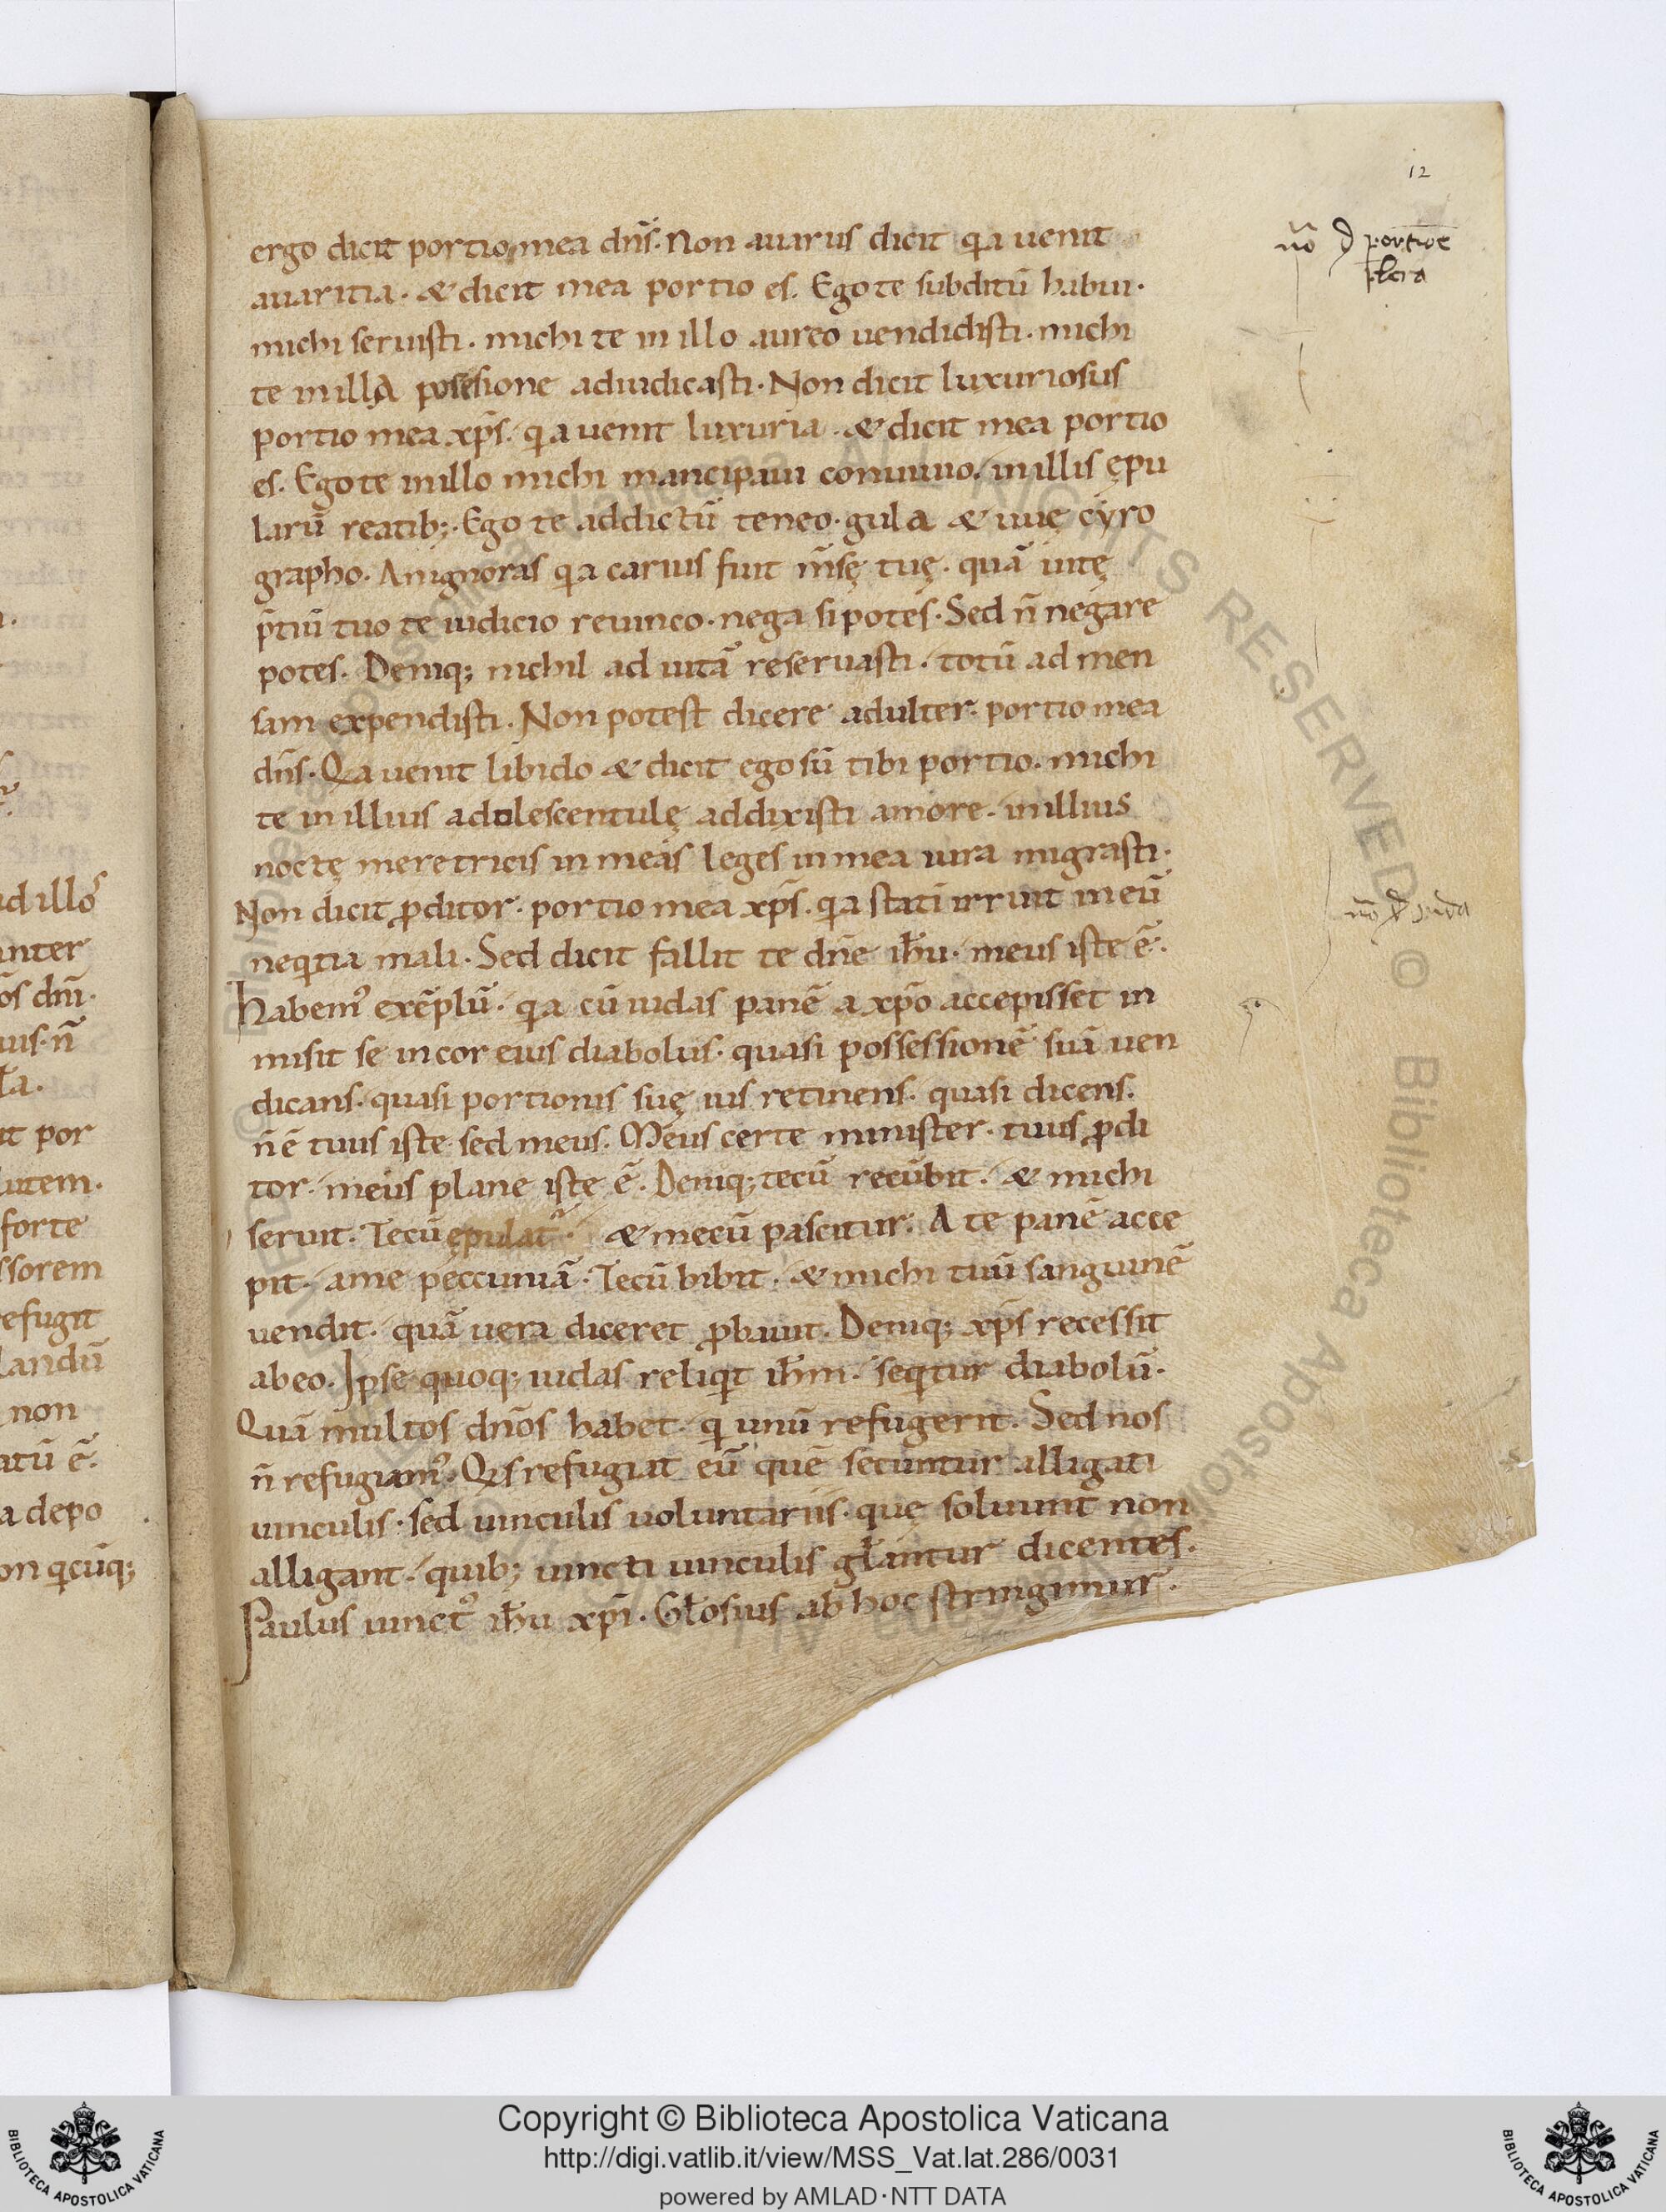 12
ergo dicit portio mea dn̄s. Non auarus dicit qa uenit
auaritia. & dicit mea portio es. Ego te subditū habui.
michi seruisti. michi te in illo aureo uendidisti. michi
te in illa possesione adiudicasti. Non dicit luxuriosus
portio mea xp̄s. qa uenit luxuria. & dicit mea portio
es. Ego te in illo michi mancipaui conuiuio. in illis ępu
larū reatib;. Ego te addictū teneo. gula & tuę cyro
grapho. An ignoras qa carius fuit m̄sę tuę. quā uitę
p̄tiū tuo te iudicio reuinco. nega si potes. Sed n̄ negare
potes. Deniq; nichil ad uitā reseruasti. totū ad men
sam expendisti. Non potest dicere adulter. portio mea
dn̄s. Qa uenit libido & dicit ego sū tibi portio. michi
te in illius adolescentulę addixisti amore. in illius
noctę meretricis in meas leges in mea iura migrasti.
Non dicit ꝓditor. portio mea xp̄s. qa statī irruit in eū
neqtia mali. Sed dicit fallit te dn̄e ih̄u. meus iste ē.
habem⁹ exēplū. qa cū iudas panē a xp̄o accepisset in
misit se in cor eius diabolus. quasi possessionē suā uen
dicans. quasi portionis suę ius retinens. quasi dicens.
n̄ ē tuus iste sed meus. Meus certe minister. tuus ꝓdi
tor. meus plane iste ē. Deniq; tecū recūbit. & michi
seruit. Tecū ępulat̄. & mecū pascitur. A te panē acce
pit. a me peccuniā. Tecū bibit. & michi tuū sanguinē
uendit. quā uera diceret ꝓbauit. Deniq; xp̄s recessit
ab eo. Ipse quoq; iudas reliqit ih̄m. seqtur diabolū.
Quā multos dn̄os habet. q unū refugerit. Sed nos
n̄ refugiam⁹. Qis refugiat eū quē secuntur alligati
uinculis. sed uinculis uoluntariis. quę soluunt non
alligant. quib; uincti uinculis gl̄antur dicentes.
Paulus uinct⁹ ih̄u xp̄i. Gl̄osius ab hoc stringimur.
nō d̄ portiōe
nō d̄ iuda
Copyright © Biblioteca Apostolica Vaticana
http://digi.vatlib.it/view/MSS_Vat.lat.286/0031
powered by AMLAD·NTT DATA
BIBLIOTECA APOSTOLICA VATICANA
BIBLIOTECA APOSTOLICA VATICANA